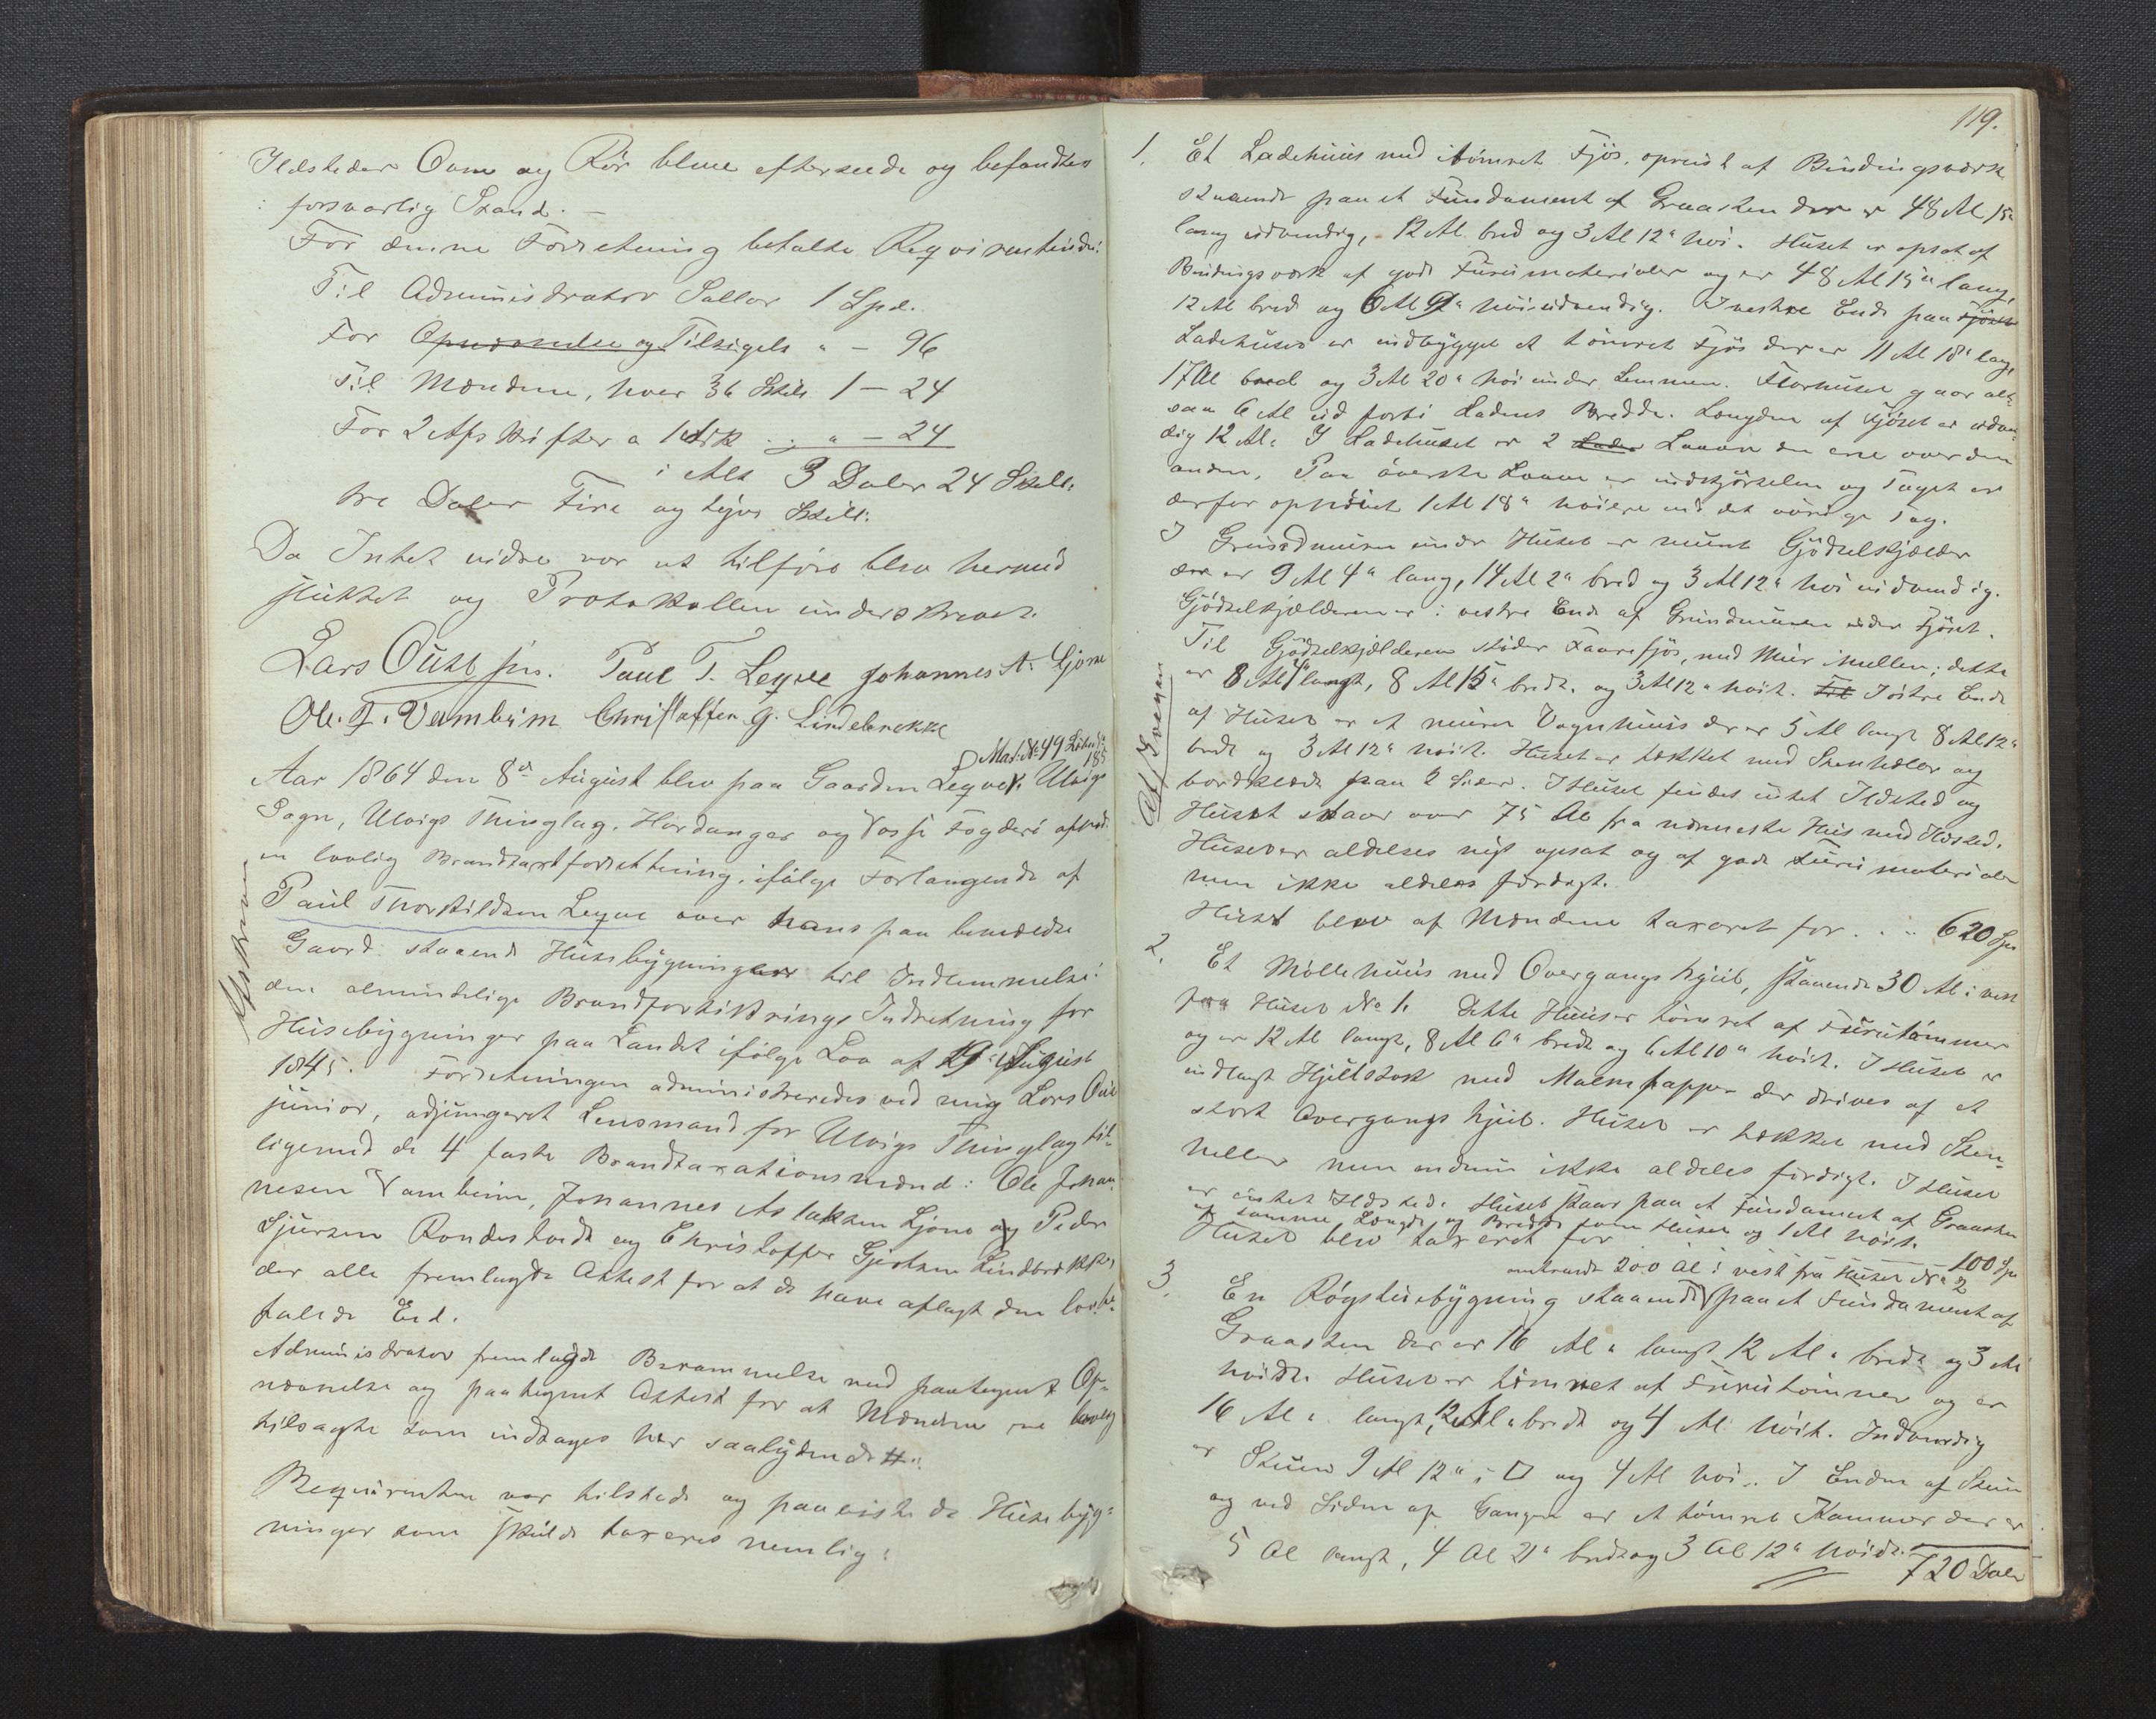 Ildsteder Ovne og Rör bleve efterseede og befandtes
i forsvarlig Stand. —
For denne Forretning betalte Reqvirentinden:
Til Administrator Sallær 1 Spd.
For Opnævnelse og Tilsigels " — 96
Til Mændene, hver 36 Skill. 1 — 24
For 2 Afskrifter a 1 Ark . . " — 24
i Alt 3 Daler 24 Skill:
tre Daler Fire og tyve Skill:
Da Intet vidre var at tilföre blev hermed
sluttet og Protokollen underskrevet.
Lars Quale jun. Paul T. Leqve Johannes A. Ljone
Ole. J. Vambeim Christoffer G. Lindebrekke
Mat: No 49 Löbe No
185
Aar 1864 den 8de August blev paa Gaarden Leqve Ulvigs
Sogn, Ulvigs Thinglag, Hardanger og Vosse Fogderi afholdt
en lovlig Brandtaxtforretning, ifölge Forlangende af
Paul Thorkildsen Leqve over hans paa bemeldte
Gaard staaende Huusbygninger til Indlemmelse i
den almindelige Brandforsikrings Indretning for
Husebygninger paa Landet ifölge Lov af 19de August
1845. Forretningen administreredes ved mig Lars Quale
junior, adjungeret Lensmand for Ulvigs Thinglag til-
ligemed de 4 faste Brandtaxationsmænd: Ole Johan-
nesen Vambeim, Johannes Aslaksen Ljono og Peder
Sjursen Rondestvedt og Christoffer Gjertsen Lindebrekke,
der alle fremlagde Attest for at de have aflagt den lovbe-
falede Eed.
Administrator fremlagde Berammelse med paategnet Op-
nævnelse og paategnet Attest for at Mændene ere lovlig
tilsagte som indtages her saalydende #.
Reqvirenten var tilstede og paaviste de Husebyg-
ninger som skulde taxeres nemlig:
Afskreven
119.
1. Et Ladehuus med itömret Fjös, opreist af Bindingsværk
staaende paa et Fundament af Graasten der er 48 Al 15"
lang udvendig, 12 Al. bred og 3 Al 12" höi. Huset er opsat af
Bindingsværk af gode Furumaterialer og er 48 Al 15" lang,
12 Al bred og 6 Al 9" höi udvendig. I vestre Ende paa Fjöset
Ladehuset er indbygget et tömret Fjös der er 11 Al 18" lang,
17 Al bred og 3 Al 20" höi under Lemmen. Florhuset gaar alt-
saa 6 Al ud forbi Ladens Bredde. Længden af Fjöset er udven-
dig 12 Al. I Ladehuset er 2 Lader Laaver den ene over den
anden. Paa överste Laave er indkjörselen og Taget er
derfor ophöiet 1 Al 18" höiere end det övrige Tag.
I Grundmuren under Huset er muret Gjödselkjælder
der er 9 Al 4" lang, 14 Al 2" bred og 3 Al 12" höi indvendig.
Gjödselkjælderen er i vestre Ende af Grundmuren under Fjöset.
Til Gjödselkjælderen stöder Faarefjös, med Muur imellem; dette
er 8 Al 4" langt, 8 Al 15" bredt og 3 Al 12" höit. I östre Ende
af Huset er et muret Vognhuus der er 5 Al langt 8 Al 12"
bredt og 3 Al 12" höit. Huset er tækket med Steenheller og
bordklædt paa 2 Sider. I Huset findes intet Ildsted og
Huset staar over 75 Al fra nærmeste Huus med Ildsted.
Huset er aldeles nyt opsat og af gode Furumaterialer
men ikke aldeles færdigt.
Huset blev af Mændene taxeret for . . " 620 Spd
2. Et Möllehuus med Overgangshjul, staaende 30 Al i vest
fra Huset No 1. Dette Huus er tömret af Furutömmer
og er 12 Al langt, 8 Al 6" bredt og 6 Al 10" höit. I Huset er
indlagt Hjulstok med Malmtapper der drives af et
stort Overgangshjul. Huset er tækket med Steen-
heller men endnu ikke aldeles færdigt. I Huset
er intet Ildsted. Huset staar paa et Fundament af Graasten
af samme Længde og Bredde som Huset og 1 Al höit.
Huset blev taxeret for — 100 Spd
omtrendt 200 Al i vest fra Huset No 2
3. En Rögstuebygning staaende paa et Fundament af
Graasten der er 16 Al " langt 12 Al " bredt og 3 Al
höidt. Huset er tömret af Furutömmer og er
16 Al " langt, 12 Al " bredt og 4 Al höit. Indvendig
er Stuen 9 Al 12" i □ og 4 Al höi. I Enden af Stuen
og ved Siden af Gangen er et tömret Kammer der er
5 Al langt, 4 Al 21" bredt og 3 Al 12" höidt.
720 Daler